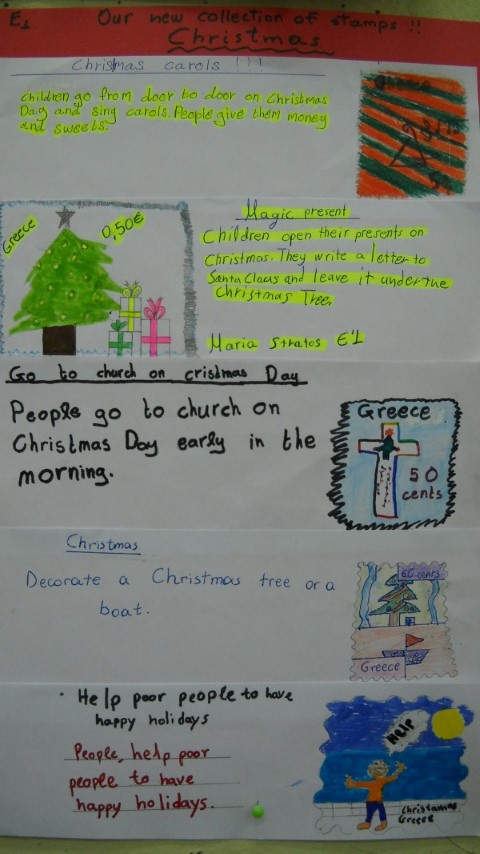 E1 Our new collection of stamps !!
Christmas
Christmas carols !!!
children go from door to door on Christmas
Day and sing carols. People give them money
and sweets.
Greece
Greece
0,50€
Magic present
Children open their presents on
Christmas. They write a letter to
Santa Claus and leave it under the
Christmas Tree.
Maria Stratos E'1
Go to church on cristmas Day
People go to church on
Christmas Day early in the
morning.
Greece
50
cents
Christmas
Decorate a Christmas tree or a
boat.
60 cents
Greece
Help poor people to have
happy holidays
People, help poor
people to have
happy holidays.
HELP
Christamas
Greece